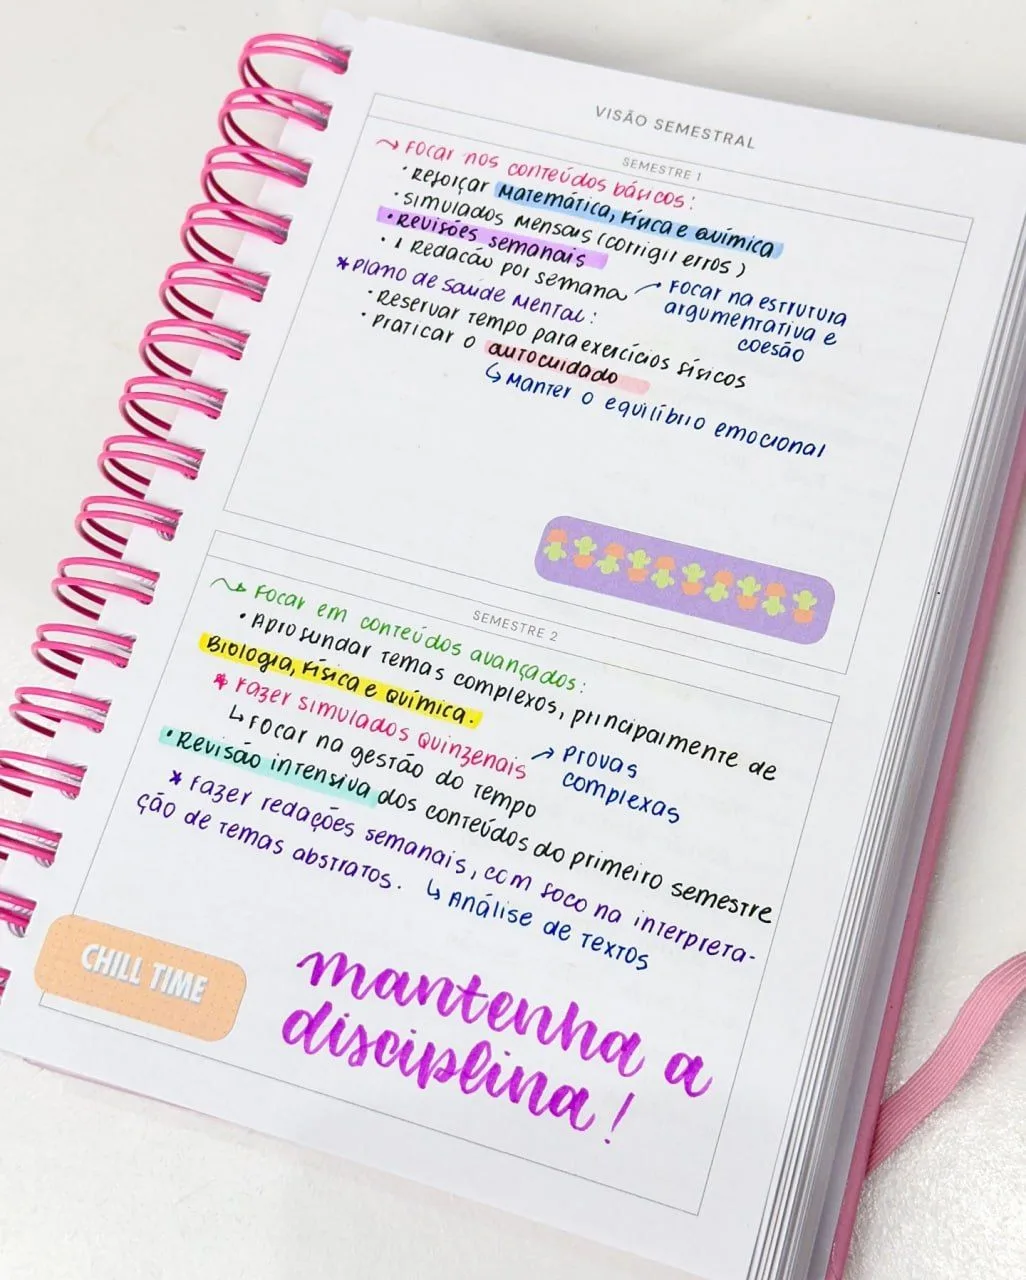 VISÃO SEMESTRAL
SEMESTRE 1
→ Focar nos conteúdos básicos:
• Reforçar Matemática, Física e Química
• Simulados mensais (corrigir erros)
• Revisões semanais
• 1 Redação por semana → Focar na estrutura
argumentativa e
coesão
* Plano de saúde mental:
• Reservar tempo para exercícios físicos
• Praticar o autocuidado
↳ Manter o equilíbrio emocional
SEMESTRE 2
→ Focar em conteúdos avançados:
• Aprofundar temas complexos, principalmente de
Biologia, Física e Química.
* Fazer simulados quinzenais → Provas
complexas
↳ Focar na gestão do tempo
• Revisão intensiva dos conteúdos do primeiro semestre
* Fazer redações semanais, com foco na interpreta-
ção de temas abstratos. ↳ Análise de textos
CHILL TIME
mantenha a
disciplina!